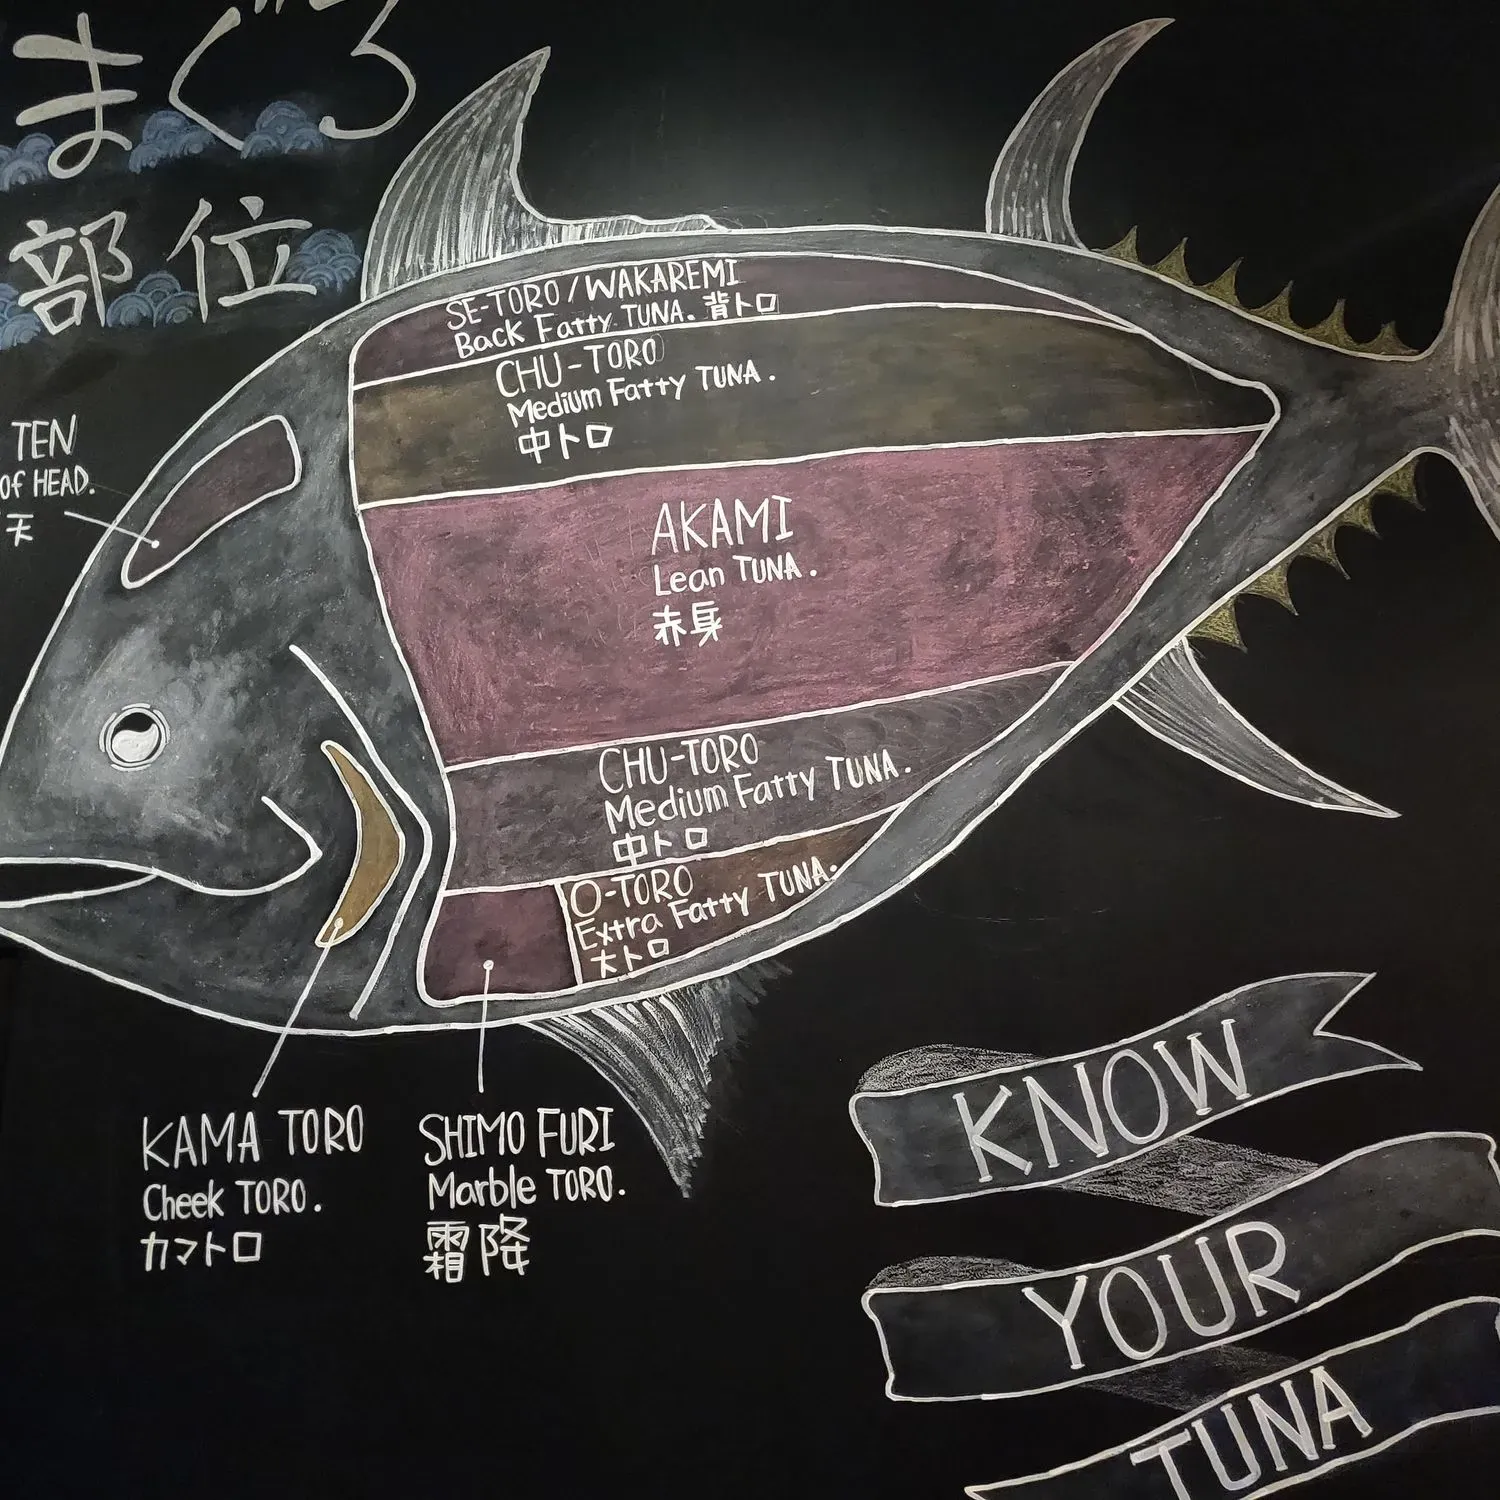 まぐろ
部位
TEN
of HEAD.
天
SE-TORO/WAKAREMI
Back Fatty TUNA. 背トロ
CHU-TORO
Medium Fatty TUNA.
中トロ
AKAMI
Lean TUNA.
赤身
CHU-TORO
Medium Fatty TUNA.
中トロ
O-TORO
Extra Fatty TUNA.
大トロ
KAMA TORO
Cheek TORO.
カマトロ
SHIMO FURI
Marble TORO.
霜降
KNOW
YOUR
TUNA